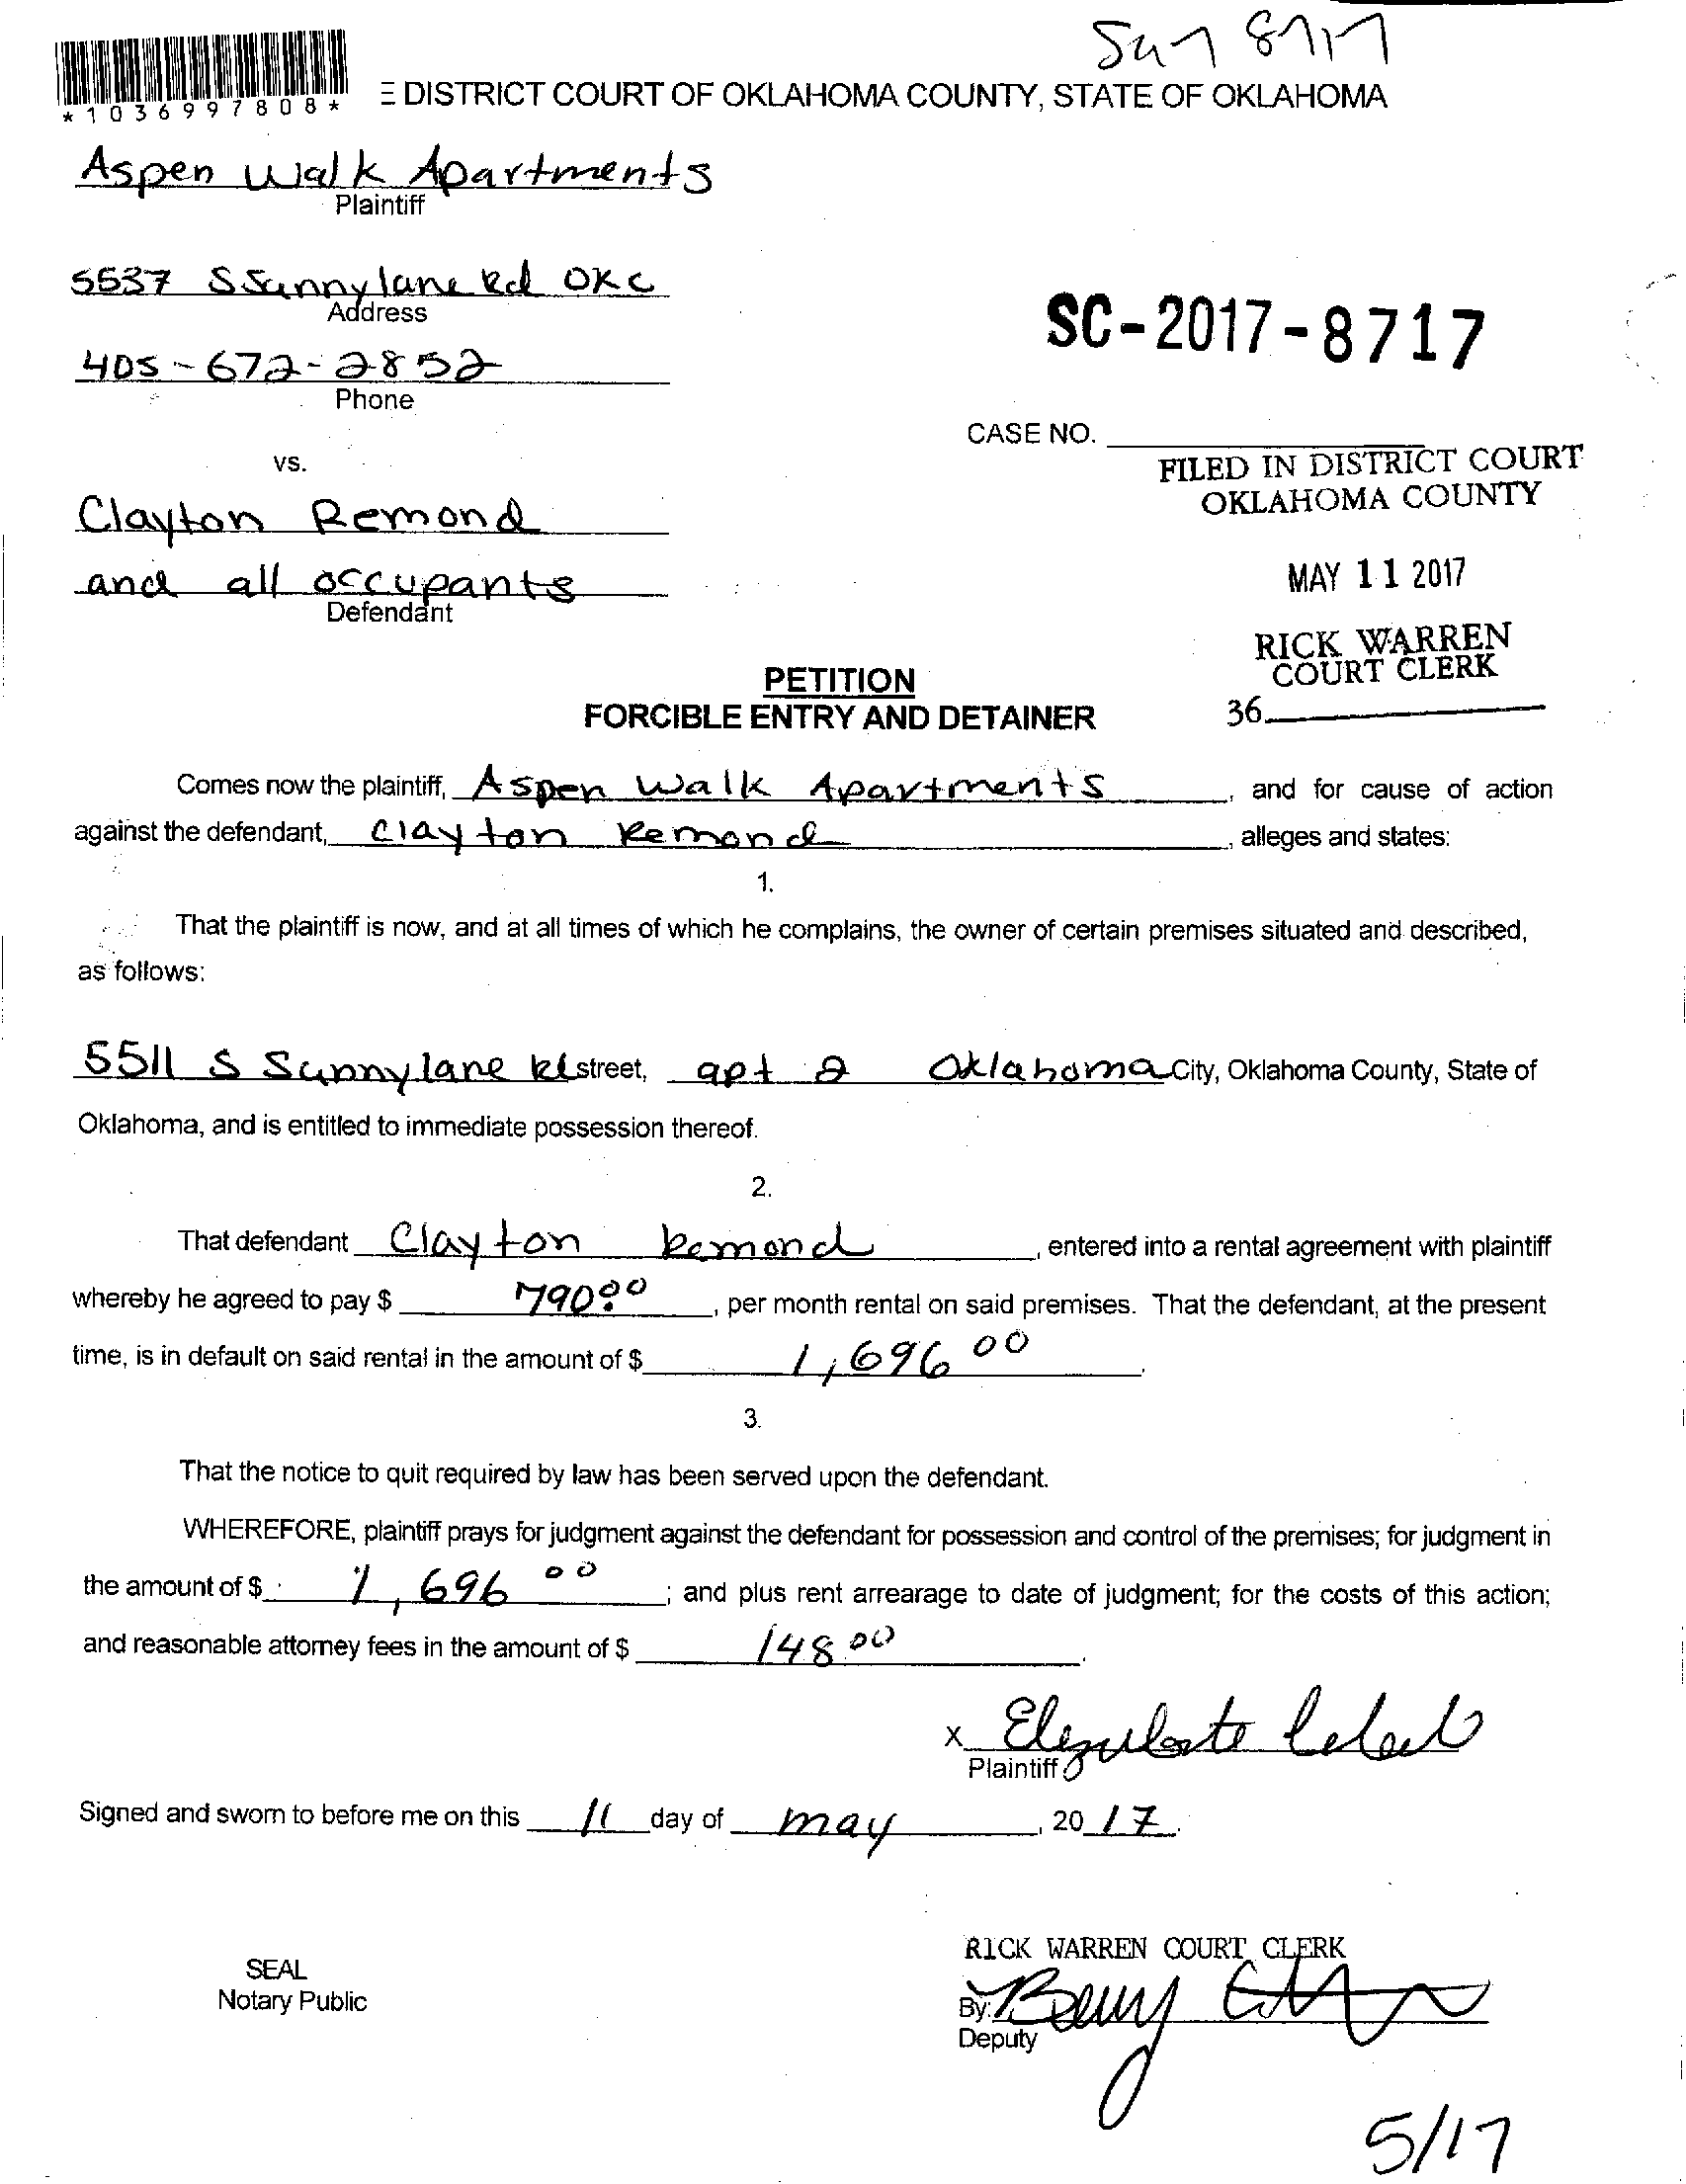 *1036997808*
DISTRICT COURT OF OKLAHOMA COUNTY, STATE OF OKLAHOMA
Aspen Walk Apartments
Plaintiff
5537 S Sunnylane Rd OKC
Address
405-672-2852
Phone
SC-2017-8717
CASE NO.
vs.
FILED IN DISTRICT COURT
OKLAHOMA COUNTY
Clayton Remond
and all occupants
Defendant
MAY 11 2017
RICK WARREN
COURT CLERK
36
PETITION
FORCIBLE ENTRY AND DETAINER
Comes now the plaintiff, Aspen Walk Apartments, and for cause of action
against the defendant, Clayton Remond, alleges and states:
1.
That the plaintiff is now, and at all times of which he complains, the owner of certain premises situated and described,
as follows:
5511 S Sunnylane Rd street, apt 2 Oklahoma City, Oklahoma County, State of
Oklahoma, and is entitled to immediate possession thereof.
2.
That defendant Clayton Remond, entered into a rental agreement with plaintiff
whereby he agreed to pay $ 790.00, per month rental on said premises. That the defendant, at the present
time, is in default on said rental in the amount of $ 1,696 00.
3.
That the notice to quit required by law has been served upon the defendant.
WHEREFORE, plaintiff prays for judgment against the defendant for possession and control of the premises; for judgment in
the amount of $ 1,696 00; and plus rent arrearage to date of judgment; for the costs of this action;
and reasonable attorney fees in the amount of $ 148 00.
x
Plaintiff
Signed and sworn to before me on this 11 day of may, 20 17.
SEAL
Notary Public
RICK WARREN COURT CLERK
By:
Deputy
5/17